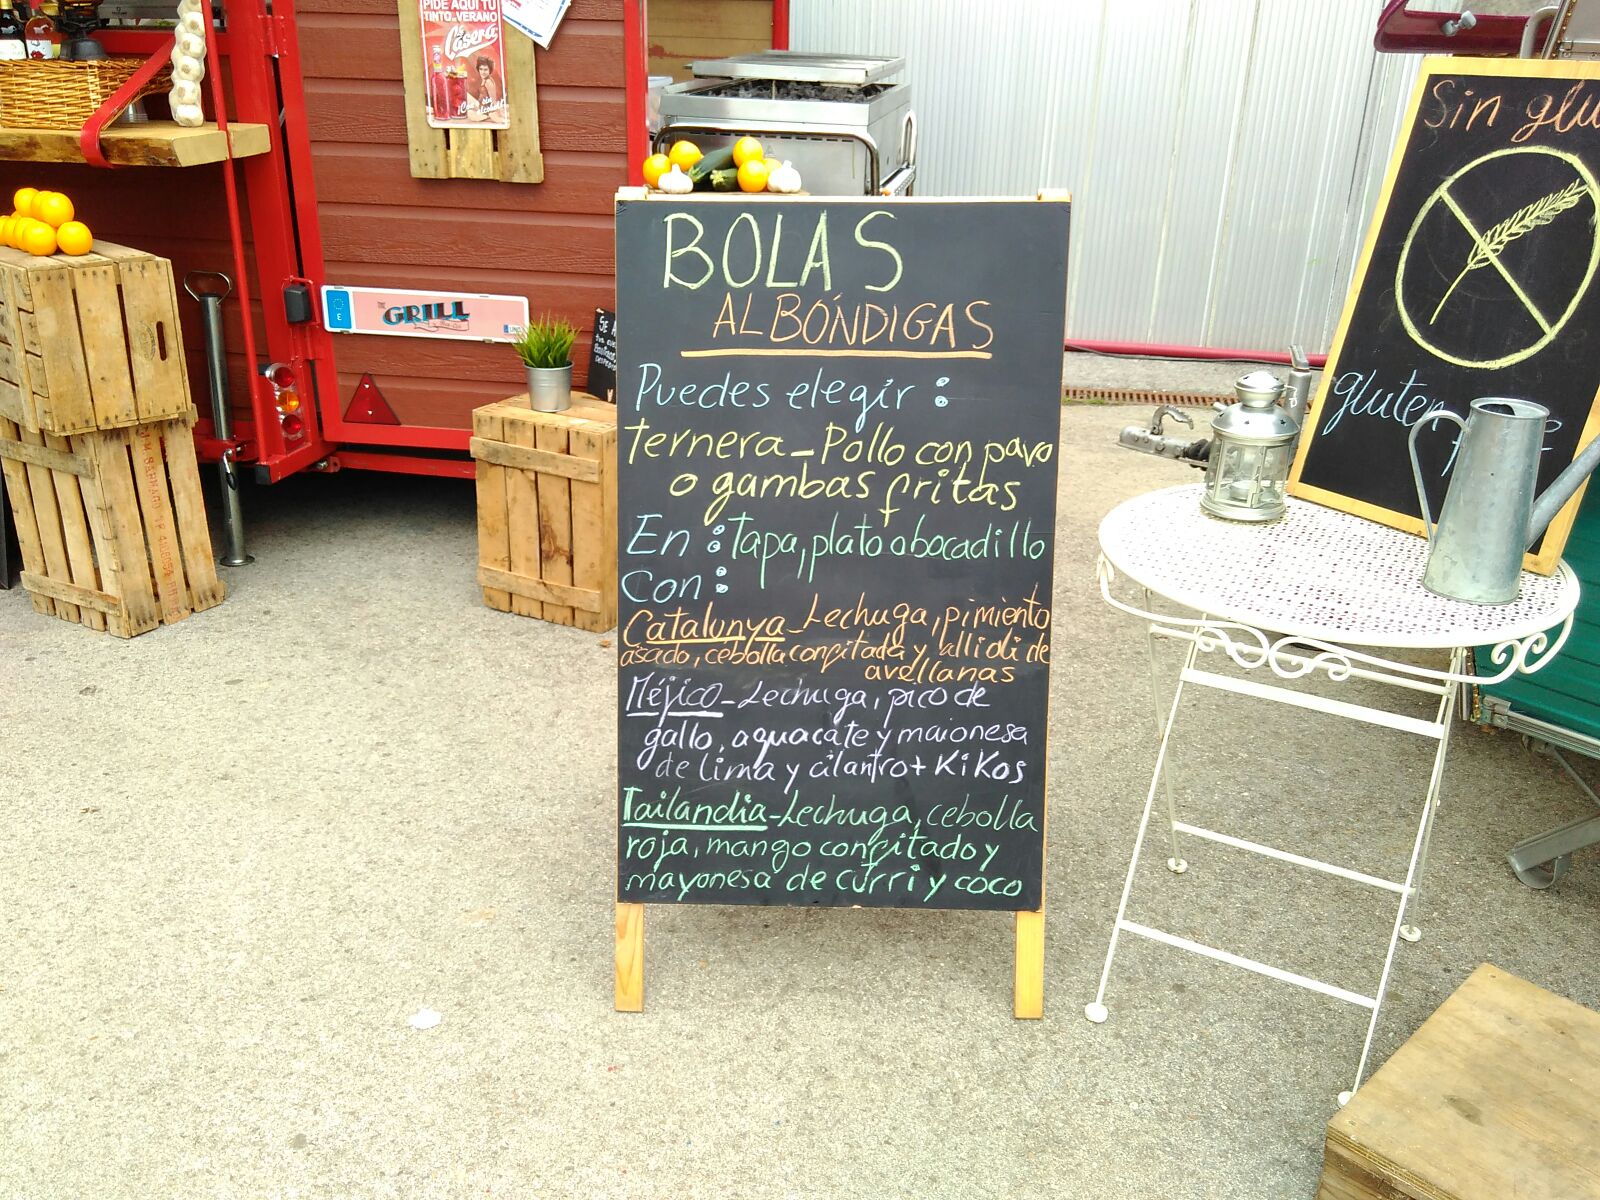 PIDE AQUÍ TU
TINTO DE VERANO
La Casera
BOLAS
ALBÓNDIGAS
Puedes elegir :
ternera - Pollo con pavo
o gambas fritas
En : tapa, plato o bocadillo
Con :
Catalunya - Lechuga, pimiento
asado, cebolla confitada y allioli de
avellanas
Méjico - Lechuga, pico de
gallo, aguacate y maionesa
de lima y cilantro + KiKos
Tailandia - Lechuga, cebolla
roja, mango confitado y
mayonesa de curri y coco
THE
GRILL
E
Sin glu
gluten